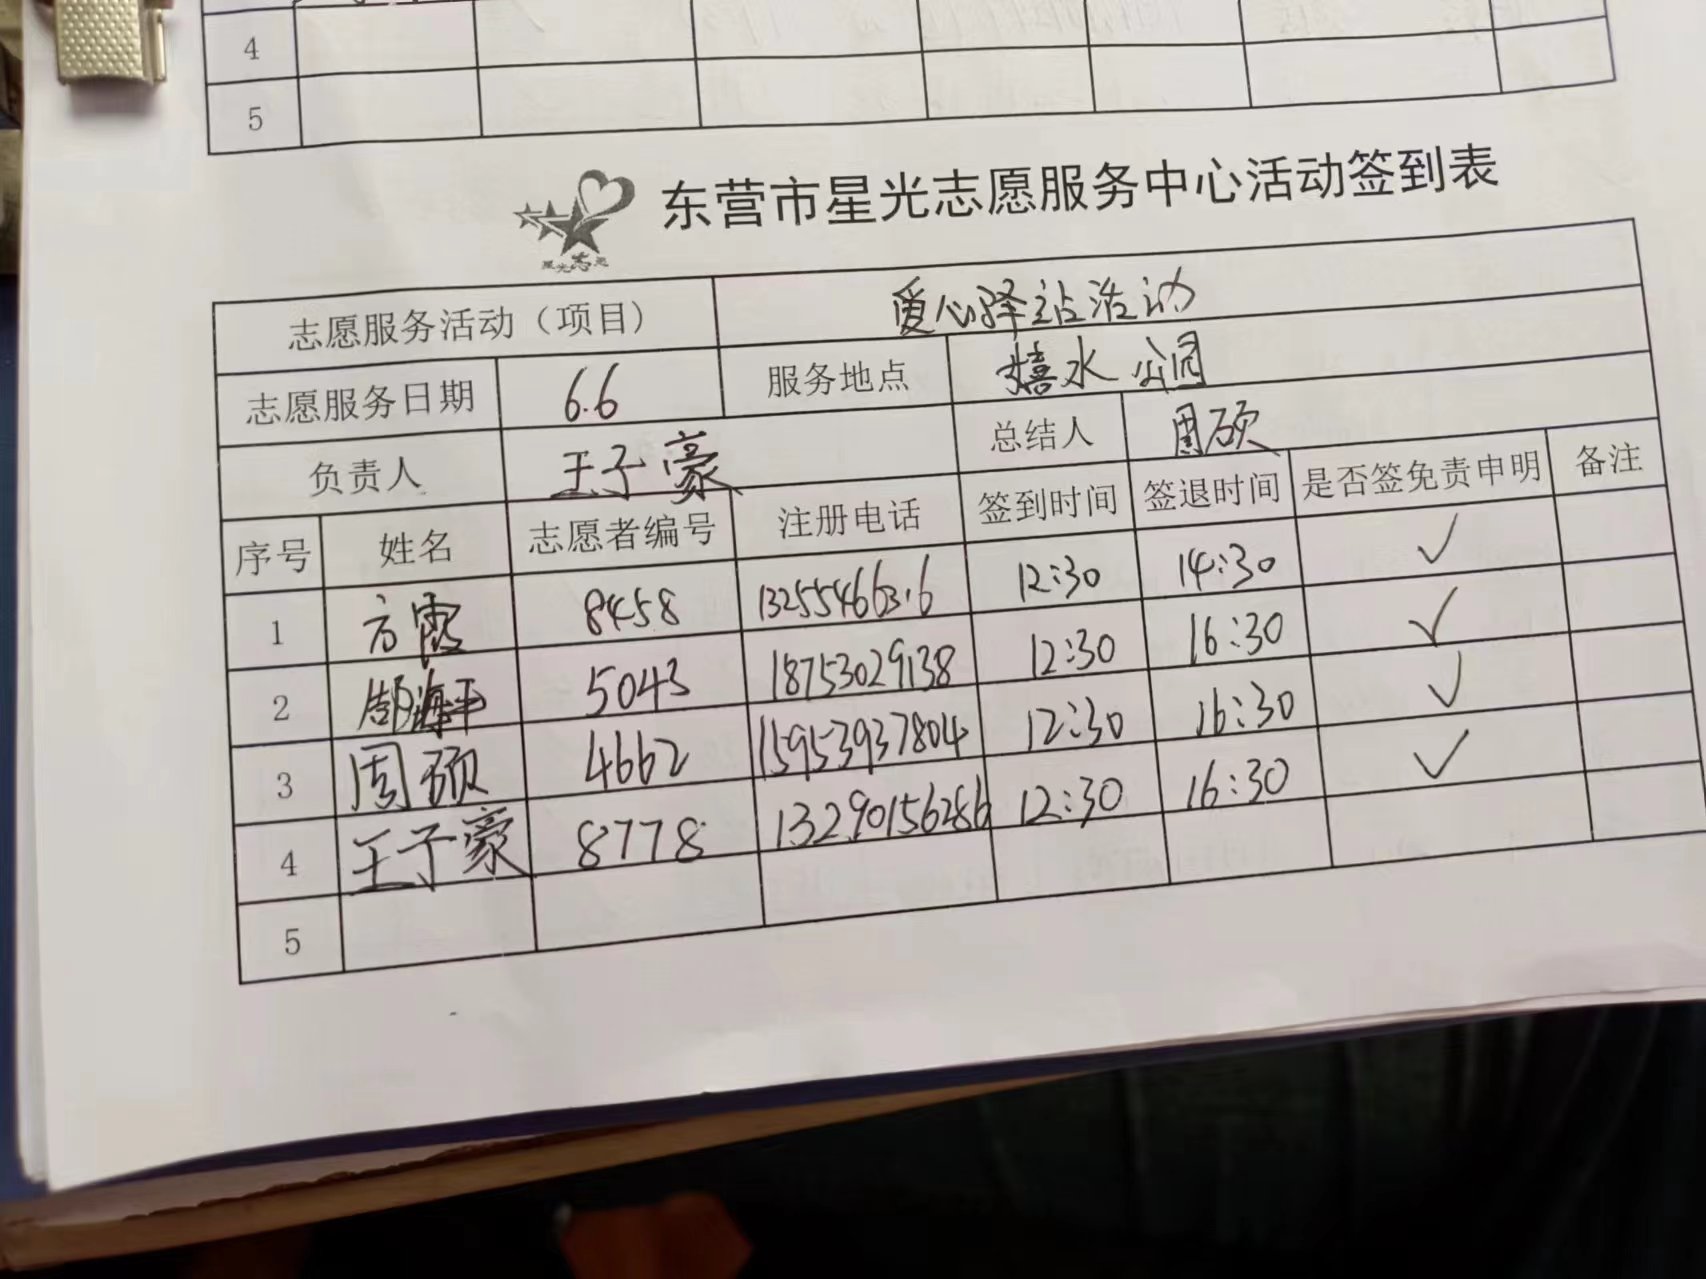 4
5
星光志愿
东营市星光志愿服务中心活动签到表
志愿服务活动（项目） 爱心驿站活动
志愿服务日期 6.6 服务地点 嬉水公园
负责人 王子豪 总结人 周硕
序号 姓名 志愿者编号 注册电话 签到时间 签退时间 是否签免责申明 备注
1 方霞 8458 12:30 14:30 ✓
2 海平 5043 18753029138 12:30 16:30 ✓
3 周硕 4662 15953937804 12:30 16:30 ✓
4 王子豪 8778 13290156286 12:30 16:30 ✓
5